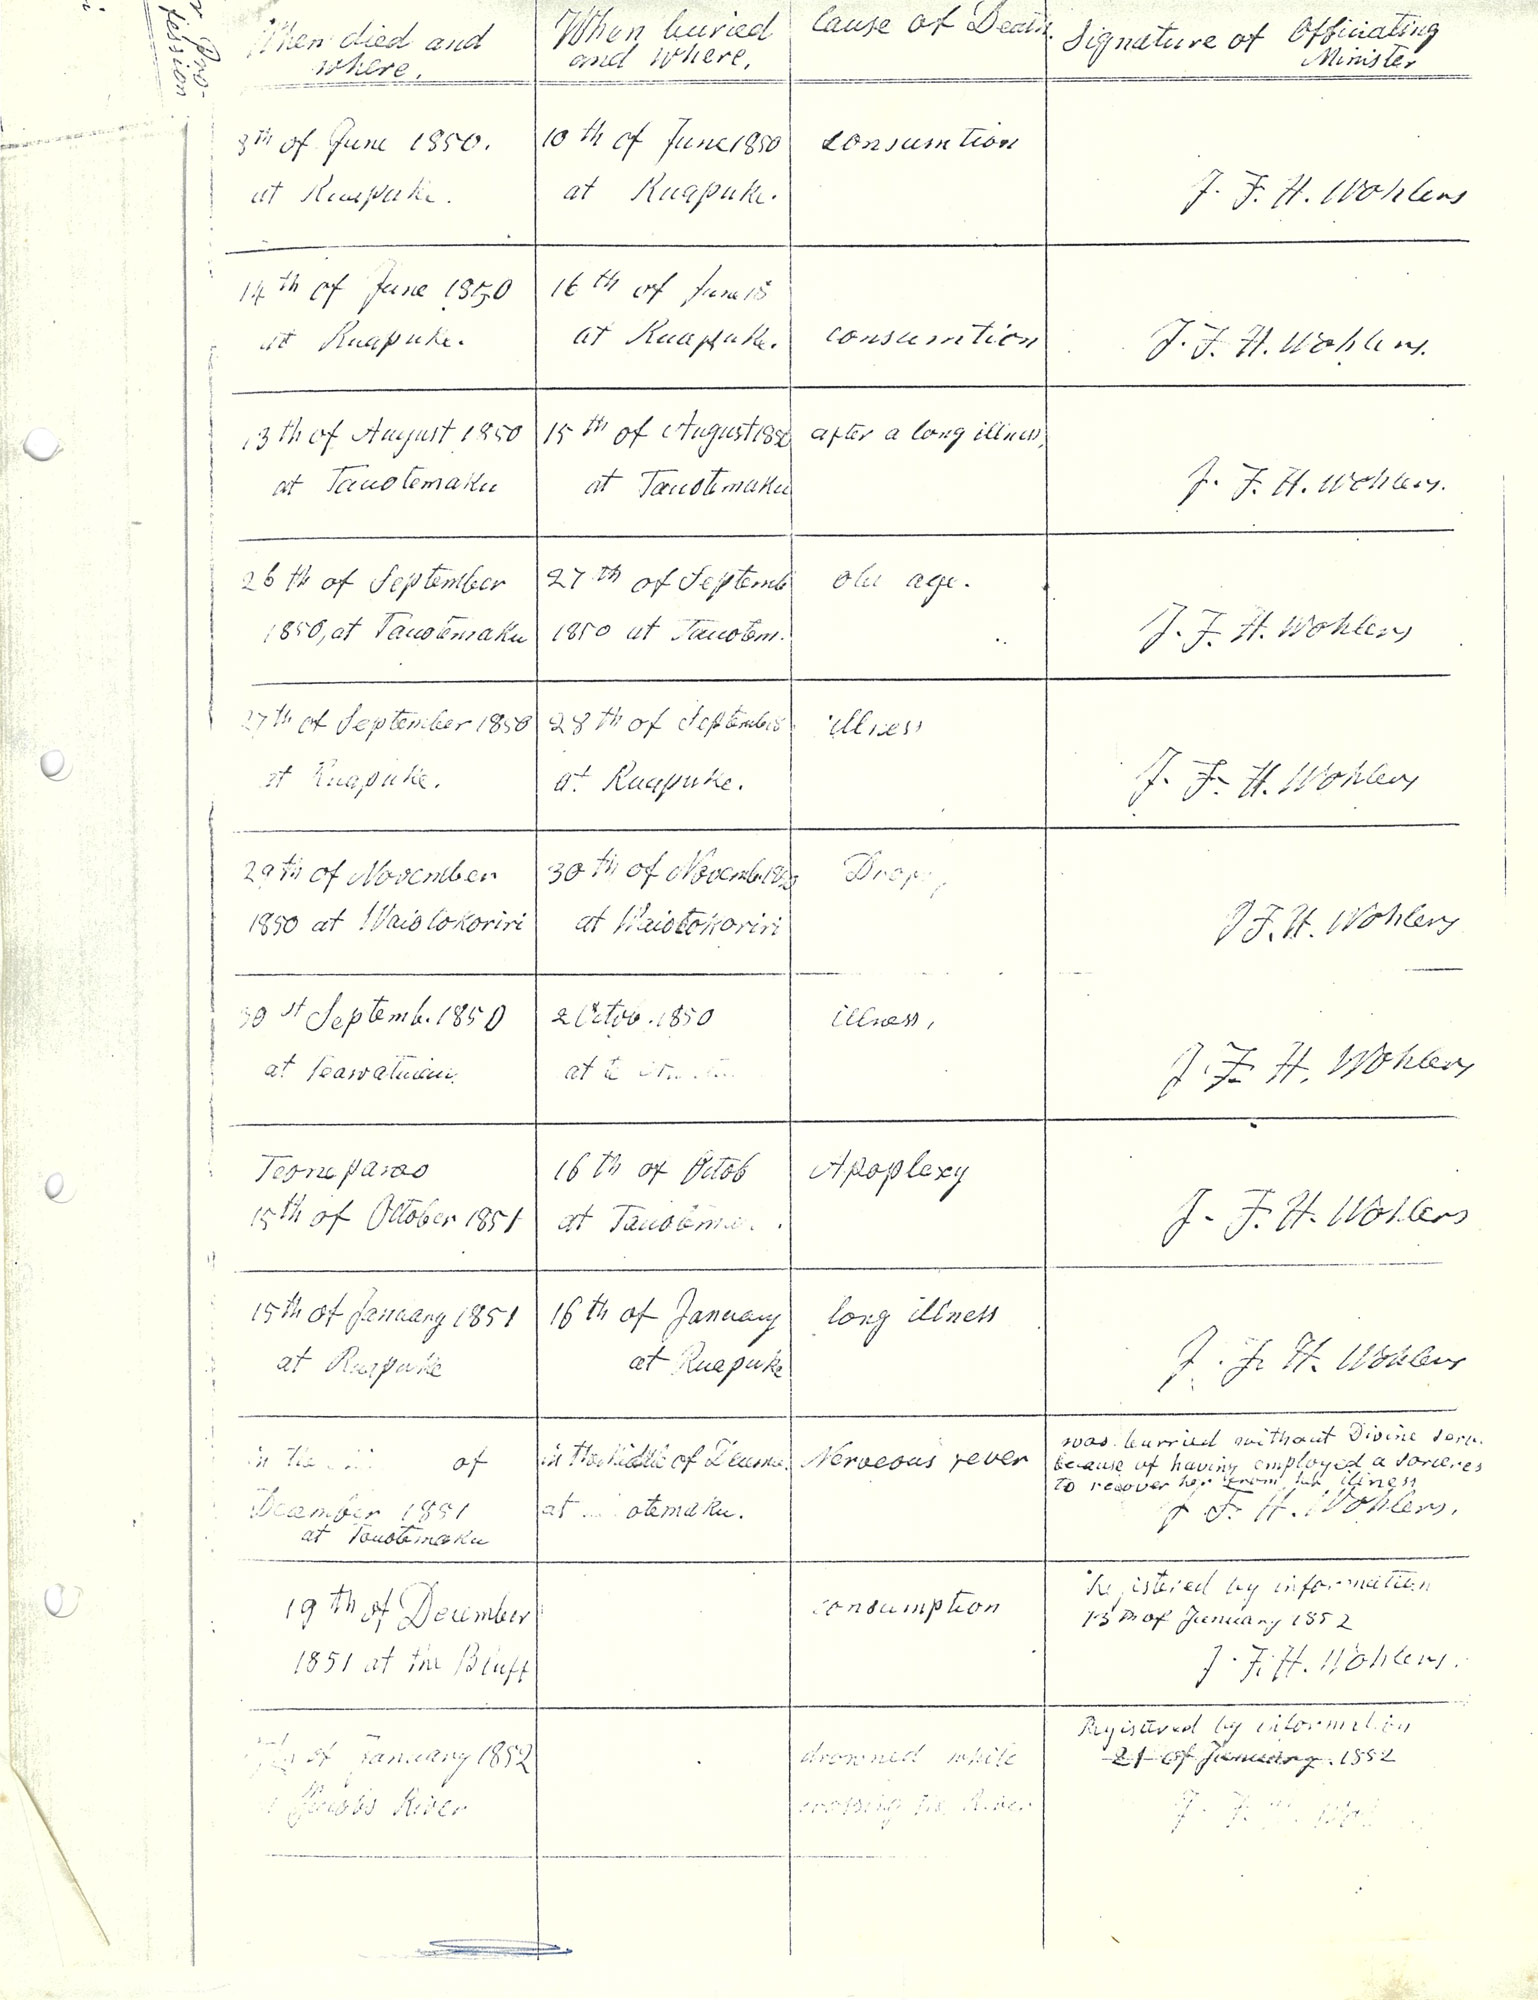 When died and
where.
When buried
and where.
Cause of Death.
Signature of Officiating
Minister
8th of June 1850.
at Ruapuke.
10th of June 1850
at Ruapuke.
consumtion
J. F. H. Wohlers
14th of June 1850
at Ruapuke.
16th of June 18
at Ruapuke.
consumtion
J. F. H. Wohlers.
13th of August 1850
at Tauotemaku
15th of August 1850
at Tauotemaku
after a long illness,
J. F. H. Wohlers.
26th of September
1850, at Tauotemaku
27th of Septemb
1850 at Tauotem.
old age.
J. F. H. Wohlers
27th of September 1850
at Ruapuke.
28th of September
at Ruapuke.
illness
J. F. H. Wohlers
29th of November
1850 at Waiotokoriri
30th of Novemb. 1850
at Waiotokoriri
J F. H. Wohlers
30st Septemb. 1850
at
2 Octob. 1850
at
illness,
J. F. H. Wohlers
Teoneparao
15th of October 1851
16th of Octob
at
Apoplexy
J. F. H. Wohlers
15th of January 1851
at Ruapuke
16th of January
at Ruapuke
long illness
J. F. H. Wohlers
in the of
December 1851
at Tauotemaku
in the Middle of Decemb.
at otemaku.
Nerveous fever
was burried without Divine serv.
because of having employed a sorceres
to recover her from her illness
J F. H. Wohlers.
19th of December
1851 at the Bluff
consumption
Registered by information
13th of January 1852
J. F. H. Wohlers.
of January 1852
Jacobs River
drowned while
crossing the River
Registered by information
21 of January. 1852
J. F. H. Wohl